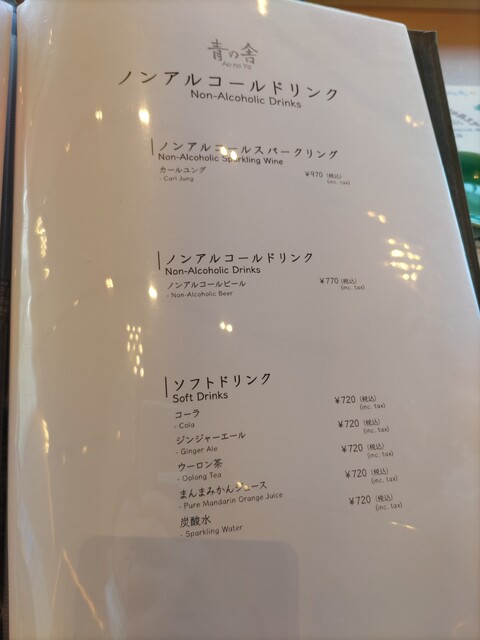 青の舎
Ao no Ya
ノンアルコールドリンク
Non-Alcoholic Drinks
ノンアルコールスパークリング
Non-Alcoholic Sparkling Wine
カールユング ¥970 (税込)
- Carl Jung (inc. tax)
ノンアルコールドリンク
Non-Alcoholic Drinks
ノンアルコールビール ¥770 (税込)
- Non-Alcoholic Beer (inc. tax)
ソフトドリンク
Soft Drinks
コーラ ¥720 (税込)
- Cola (inc. tax)
ジンジャーエール ¥720 (税込)
- Ginger Ale (inc. tax)
ウーロン茶 ¥720 (税込)
- Oolong Tea (inc. tax)
まんまみかんジュース ¥720 (税込)
- Pure Mandarin Orange Juice (inc. tax)
炭酸水 ¥720 (税込)
- Sparkling Water (inc. tax)